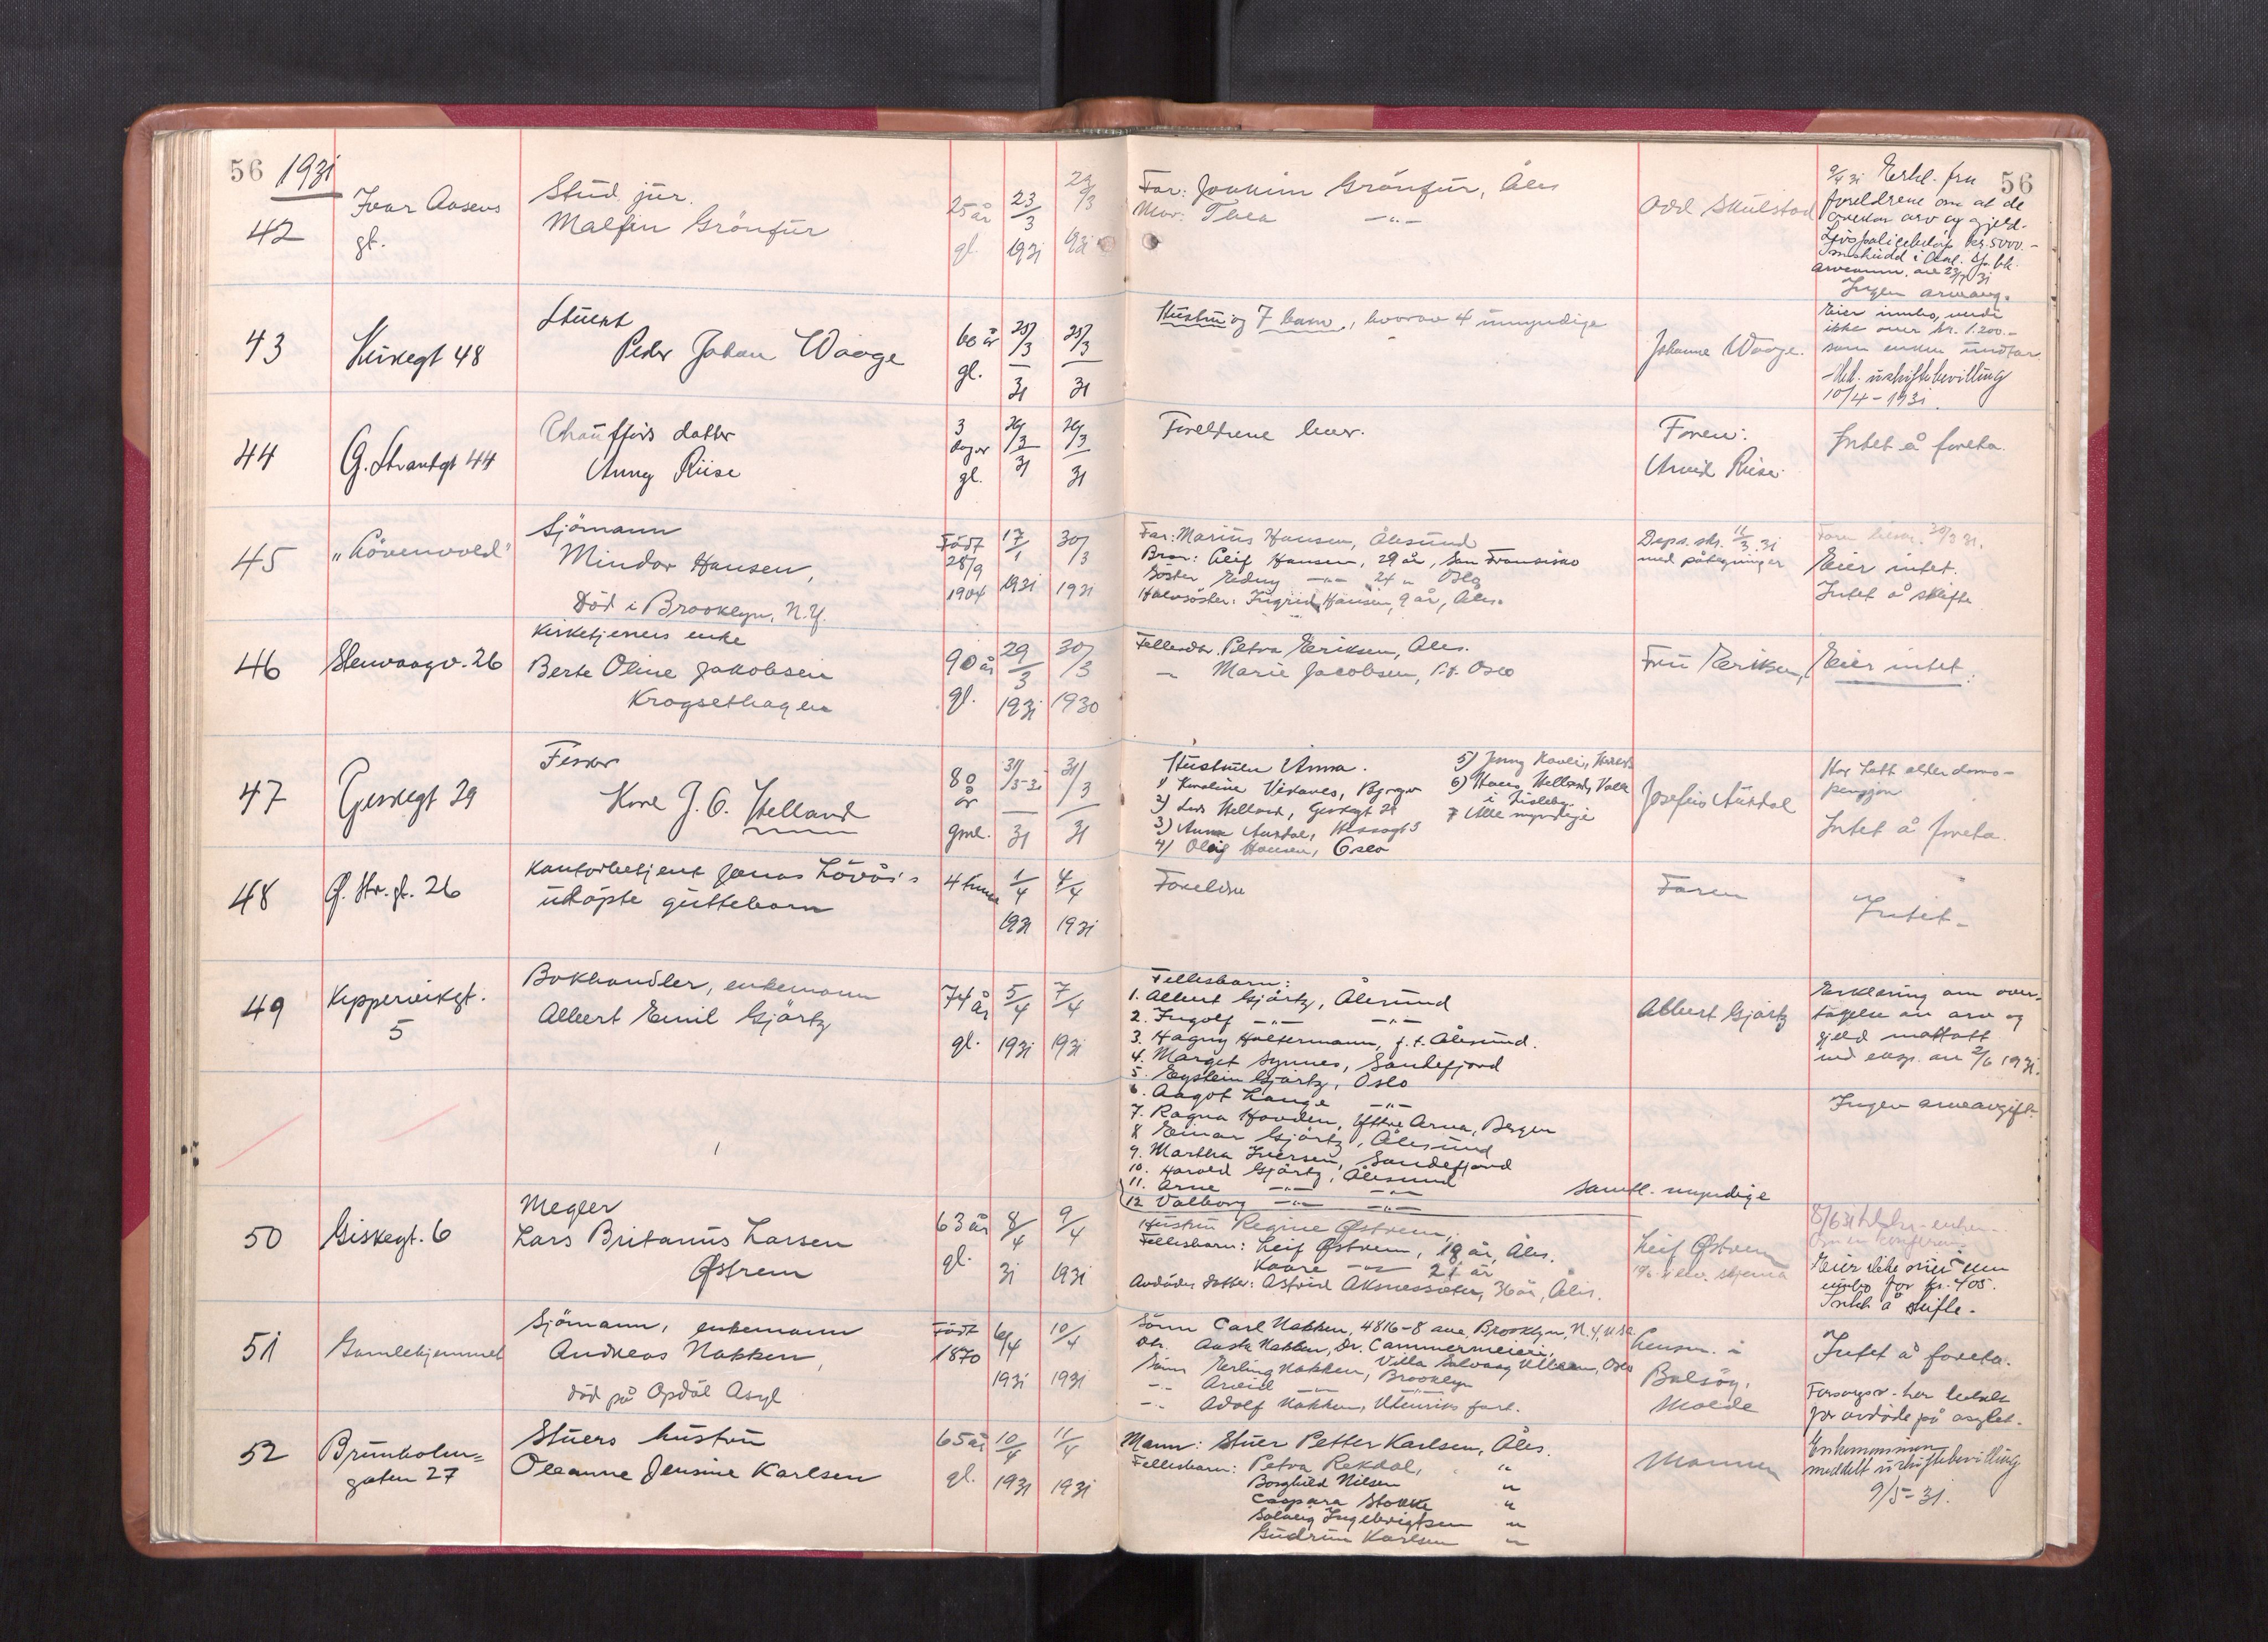 56 1931
56
42
Ivar Aasens
gt.
Stud. jur.
Malfin Grönfür
25 år
gl.
23/3
1931
23/3
1931
Far: Joakim Grönfür, Åles
Mor: Thea —"—
Odd Skülstad
9/4 31 Erkl. fra
foreldrene om at de
overtar arv og gjeld.
Livspolicebeløp kr. 5000.-
Ingen arveavg.
43
Kirkegt 48
Stuert
Peder Johan Waage
60 år
gl.
25/3
31
25/3
31
Hustru og 7 barn, hvorav 4 umyndige
Johanne Waage.
Eier innbo, verdi
ikke over kr. 1.200.-
som enken undtar.
Med. uskiftebevilling
10/4-1931.
44
G. Strandgt 44
Chaufførs datter
Anny Riise
3
dager
gl.
29/3
31
29/3
31
Foreldrene lever.
Faren:
Arvid Riise.
Intet å foreta.
45
"Lövenvold"
Sjömann
Mindor Hansen,
Död i Brooklyn, N.Y.
Født
28/9
1904
17/1
1931
30/3
1931
Far: Marius Hansen, Ålesund
Bror: Leif Hansen, 29 år, San Fransisko
Söster Edny —"— 24 " Oslo
Halvsöster: Ingrid Hansen, 9 år, Åles.
Deps. skr. 11/3 31
med påtegninger
30/3 31.
Eier intet.
Intet å skifte
46
Stenvaagv. 26
Kirketjeners enke
Berte Oline Jakobsen
Krogsethagen
90 år
gl.
29/3
1931
30/3
1930
Fellesdtr. Petra Eriksen, Åles.
— Marie Jacobsen, p.t. Oslo
Fru Eriksen,
Eier intet.
47
Giskegt 29
Fisker
Knut J. O. Helland
80
år
gml.
31/3-31
31
31/3
31
Hustruen Anna.
1) Karoline Viksnes, Bjorge
2) Lars Helland, Giskegt 29
3) Anna Aurdal, Hessagt 3
4) Oleig Hansen, Oslo
5) Jenny Kavli,
6) Hans Helland, Volla
i Lisleby.
7 Alle myndige
Josefus Aurdal
Har hatt alderdoms-
pensjon
Intet å foreta.
48
Ø. Str. gt. 26
Kontorbetjent Jonas Lövås's
udöpte guttebarn
4 timer
1/4
1931
4/4
1931
Foreldre
Faren
Intet-
49
Kippervikgt.
5
Bokhandler, enkemann
Albert Emil Gjörtz
74 år
gl.
5/4
1931
7/4
1931
Fellesbarn:
1. Albert Gjörtz, Ålesund
2. Ingolf —"— —"—
3. Hagny Holtermann, p.t. Ålesund.
4. Marget Synnes, Sandefjord
5. Eystein Gjörtz, Oslo
6. Aagot Lange —"—
7. Ragna Hovden, Ytre Arna, Bergen
8 Einar Gjörtz, Ålesund
9. Martha Iversen, Sandefjord
10. Harald Gjörtz, Ålesund
11. Arne —"— —"—
12 Valborg —"— —"—
samtl. myndige
Albert Gjörtz
Erklæring om over-
tagelse av arv og
gjeld mottatt
ved eksp. av 2/6 1931.
Ingen arveavgift.
50
Giskegt. 6
Megler
Lars Britanus Larsen
Østrem
63 år
gl.
8/4
31
9/4
1931
Hustru Regine Østrem,
Fellesbarn: Leif Østrem, 18 år, Åles.
Kaare —"— 21 år
Avdødes datter: Astrid Aksnessæter, 36 år, Åles.
Leif Østrem
8/6 31
Eier ikke mer enn
innbo for kr. 405.
Intet å skifte.
51
Gamlehjemmet
Sjömann, enkemann
Andreas Nakken,
död på Opdöl Asyl
Født
1870
6/4
1931
10/4
1931
Sönn Carl Nakken, 4816-8 ave, Brooklyn, N.Y, USA.
Dtr. Aasta Nakken, Dr. Cammermeier,
Sönn Erling Nakken, Brooklyn
Villa Solvang Ullern, Oslo
—"— Arvid —"— —"—
—"— Adolf Nakken, Utenriks fart.
Lensm. i
Bolsöy,
Molde
Intet å foreta.
Forsorgsv. har betalt
for avdøde på asylet.
52
Brunholm-
gaten 27
Stuers hustru
Oleanne Jensine Karlsen
65 år
gl.
10/4
1931
11/4
1931
Mann: Stuer Petter Karlsen, Åles.
Fellesbarn: Petra Rekdal, "
Borghild Nilsen "
Caspara Stokke "
Solveig Ingebrigtsen "
Gudrun Karlsen "
Mannen
Enkemannen
meddelt uskiftebevilling
9/5-31.